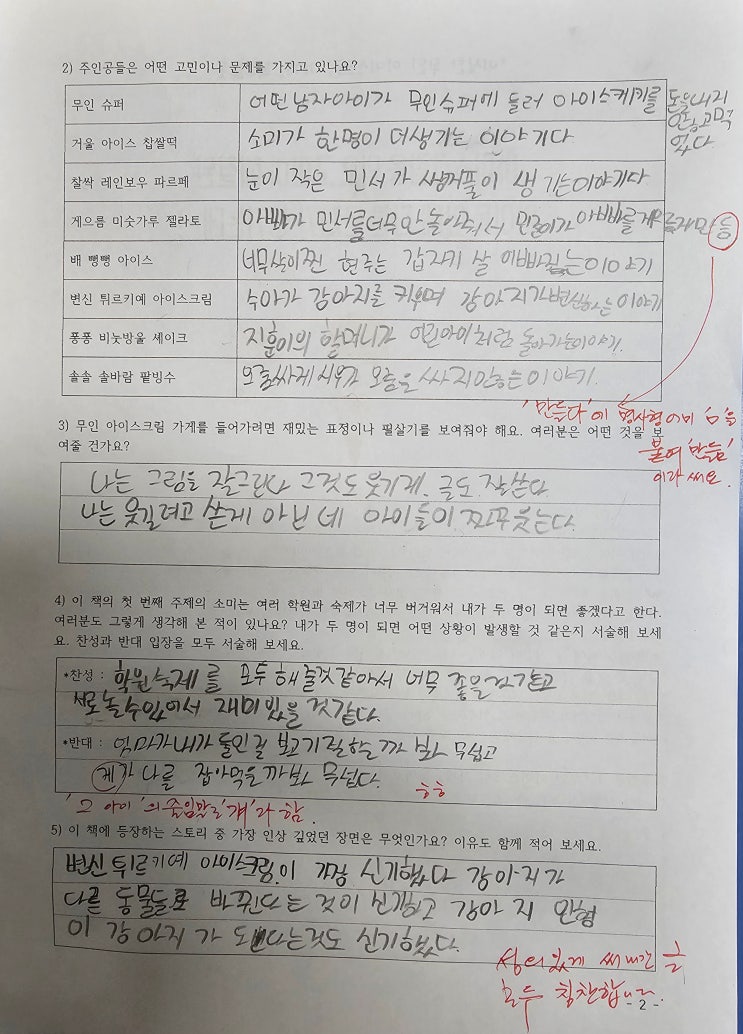 2) 주인공들은 어떤 고민이나 문제를 가지고 있나요?
무인 슈퍼 어떤 남자아이가 무인슈퍼에 들러 아이스케키를 돈을 내지 않고 먹었다
거울 아이스 찹쌀떡 소미가 한명이 더생기는 이야기다
찰싹 레인보우 파르페 눈이 작은 민서가 쌍꺼풀이 생기는이야기다
게으름 미숫가루 젤라토 아빠가 민서를 너무 안놀아줘서 아빠를 만듬
배 빵빵 아이스 너무살이찐 현주는 갑자기 살 이빠지는이야기
변신 튀르키예 아이스크림 수아가 강아지를 키우며 강아지가변신하는이야기
퐁퐁 비눗방울 셰이크 지훈이의 할머니가 어린아이처럼 돌아가는이야기.
솔솔 솔바람 팥빙수 오줌싸게 시우가 오줌을 싸지않는이야기.
'만들다'에 명사형어미 'ㅁ'을
붙여 '만듦'
이라 써요.
3) 무인 아이스크림 가게를 들어가려면 재밌는 표정이나 필살기를 보여줘야 해요. 여러분은 어떤 것을 보
여줄 건가요?
나는 그림을 잘그린다 그것도 웃기게. 글도 잘쓴다
나는 웃길려고 쓴게 아닌 데 아이들이 짜꾸 웃는다.
4) 이 책의 첫 번째 주제의 소미는 여러 학원과 숙제가 너무 버거워서 내가 두 명이 되면 좋겠다고 한다.
여러분도 그렇게 생각해 본 적이 있나요? 내가 두 명이 되면 어떤 상황이 발생할 것 같은지 서술해 보세
요. 찬성과 반대 입장을 모두 서술해 보세요.
*찬성 : 학원숙제를 모두 해줄것같아서 너무 좋을것같고
새로 놀수있어서 재미있을 것같다.
*반대 : 엄마가 내가 둘인걸 보고 기절하는까 봐 무섭고
게가 나를 잡아먹을까봐 무섭다.
흐흐
'그 아이'의 줄임말로 '걔'라 함.
5) 이 책에 등장하는 스토리 중 가장 인상 깊었던 장면은 무엇인가요? 이유도 함께 적어 보세요.
변신 튀르키예 아이스크림이 가장 신기했다 강아지가
다른 동물들로 바뀐다는 것이 신기하고 강아지 인형
이 강아지가 된다는것도 신기했다.
성의있게 써내간 글
모두 칭찬합니다.
- 2 -